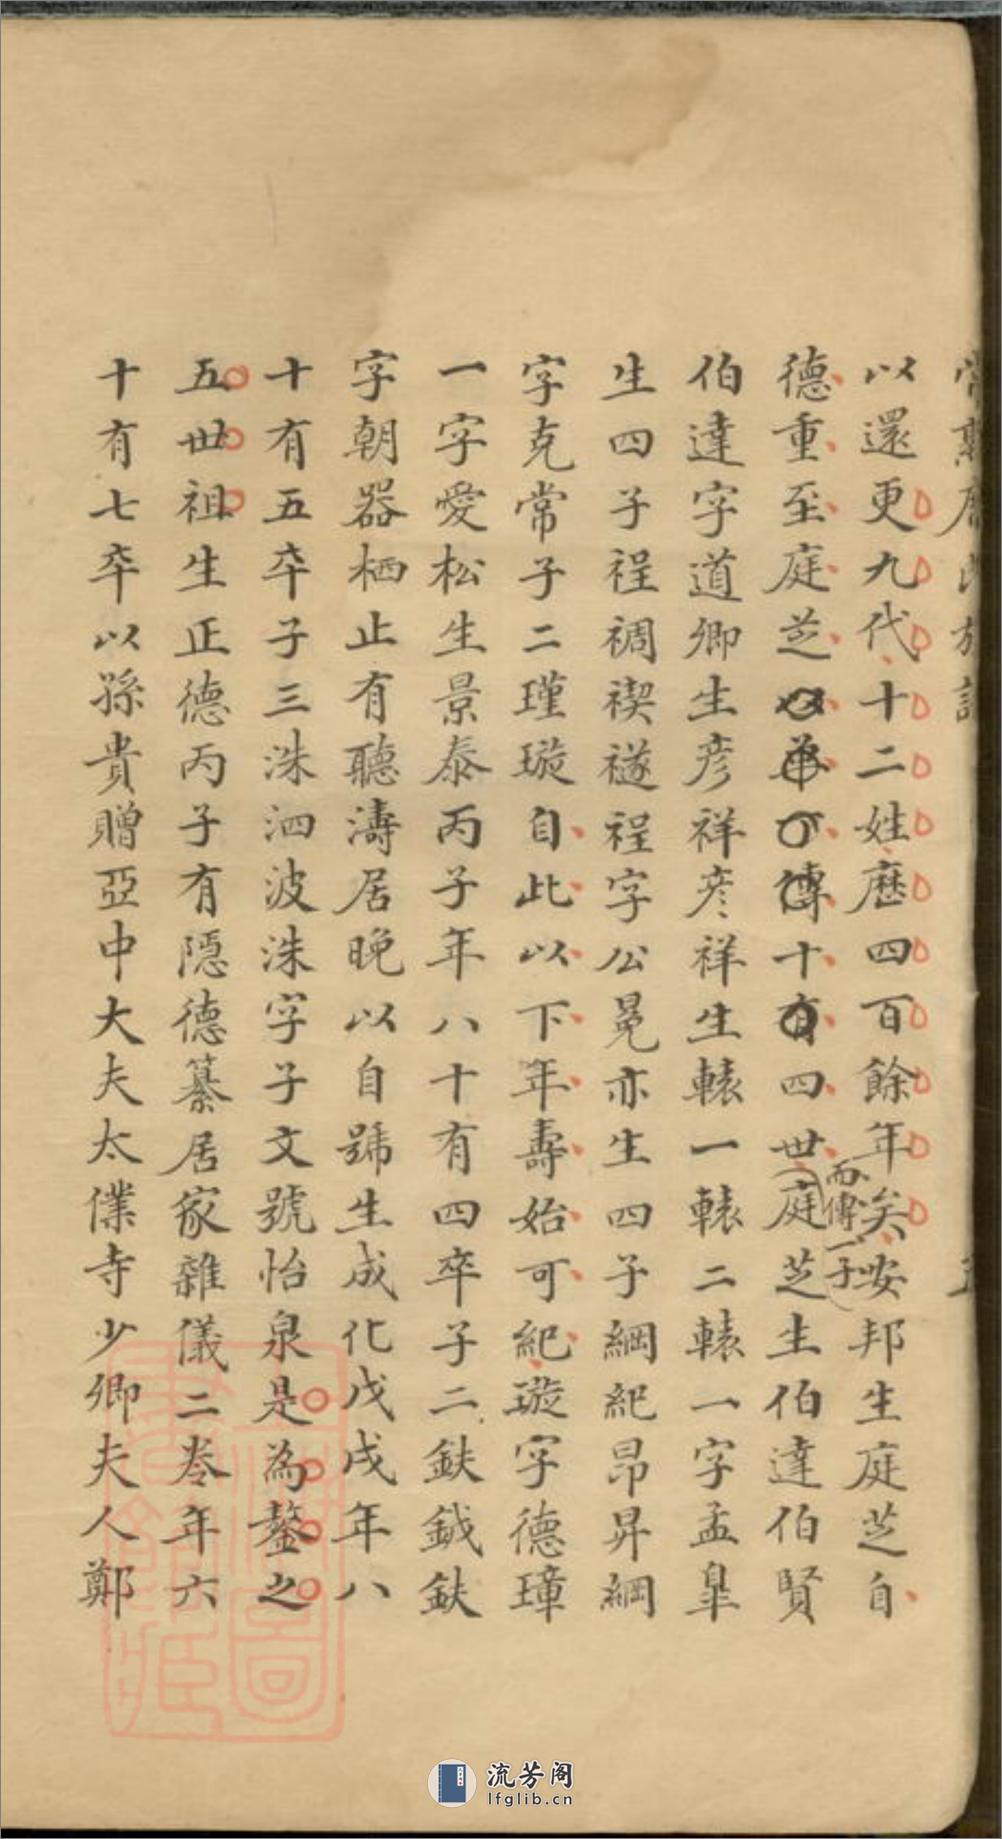 以還更九代十二姓歷四百餘年矣安邦生庭芝自
德重至庭芝傳十有四世庭芝生伯達伯賢
而傳一子
伯達字道卿生彥祥彥祥生轅一轅二轅一字孟皐
生四子裎裯禊襚裎字公冕亦生四子綱紀昂昇綱
字克常子二瑾璇自此以下年壽始可紀璇字德璋
一字愛松生景泰丙子年八十有四卒子二鈇鉞鈇
字朝器栖止有聽濤居晚以自號生成化戊戌年八
十有五卒子三洙泗波洙字子文號怡泉是為鏊之
五世祖生正德丙子有隱德纂居家雜儀二卷年六
十有七卒以孫貴贈亞中大夫太僕寺少卿夫人鄭
流芳阁
lfglib.cn